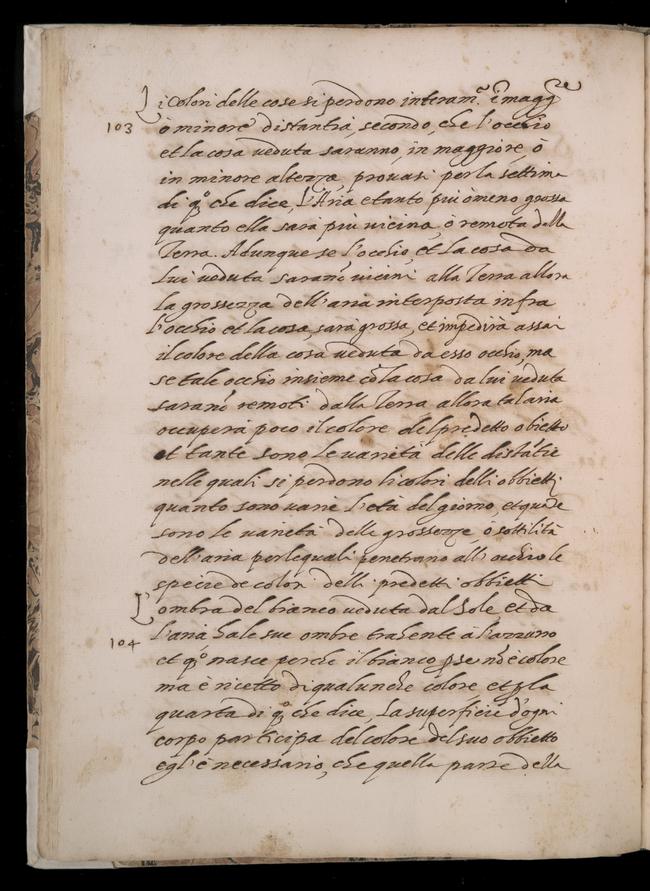 Li colori delle cose si perdono interam.te i magg.re
103
ò minore distantia, secondo, che l'occhio
et la cosa veduta saranno, in maggiore, ò
in minore altezza, provasi per la settima
di q.o che dice, L'Aria e tanto piu ò meno grossa
quanto ella sara piu vicina, ò remota dalla
Terra. Adunque se l'occhio, et la cosa da
lui veduta sarano vicini alla Terra allora
la grossezza dell'aria interposta in fra
l'occhio et la cosa, sarà grossa, et impedirà assai
il colore della cosa veduta da esso occhio, ma
se tale occhio insieme cō la cosa da lui veduta
sarano remoti dalla Terra allora tal aria
occuperà poco il colore del predetto obietto
et tante sono le varietà delle distātie
nelle quali si perdono li colori delli obbietti
quanto sono varie l'età del giorno, et quāte
sono le varietà delle grossezze, ò sottilità
dell'aria per le quali penetrano all'occhio le
specie de colori delli predetti obbietti
L'ombra del bianco veduta dal Sole et da
104
l'aria ha le sue ombre trahente à l'azzurro
et q.o nasce perche il bianco p se nō è colore
ma è ricetto di qualunche colore et p la
quarta di q.o che dice, La superficie d'ogni
corpo participa del colore del suo obbietto
egl'è necessario, che quella parte della